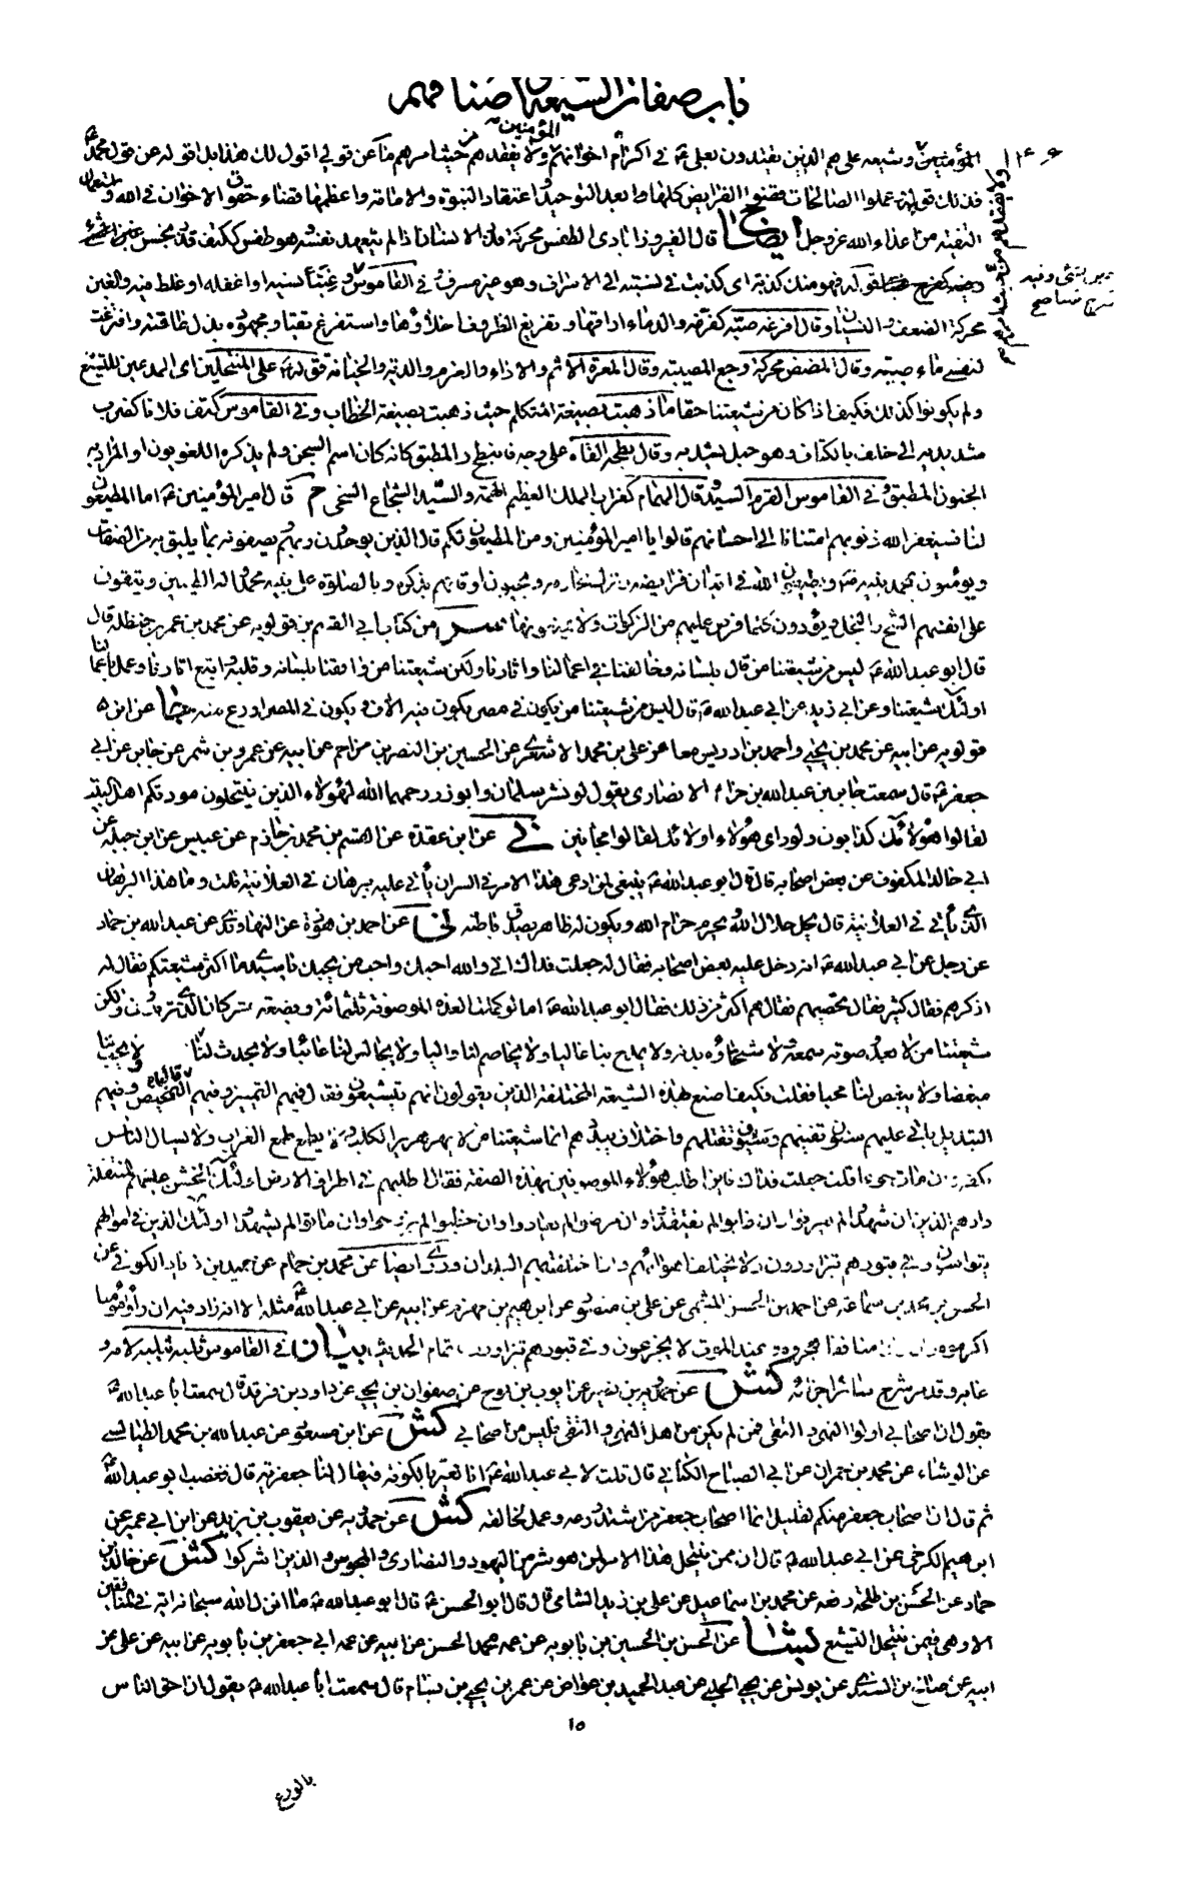 باب صفات الشيعة و اصنافهم
المؤمنين و شيعة علي هم الذين يقتدون بعلي ع في اكرام اخوانهم المؤمنين ما عن قولي اقول لك هذا بل اقوله عن قول محمد ص
فذلك قوله و عملوا الصالحات قضوا الفرايض كلها بعد التوحيد و اعتقاد النبوة و الامامة و اعظمها قضاء حقوق الاخوان في الله و استعمال
التقية من اعداء الله عز و جل ايضاح قال الفيروزابادي الطفس محركة قذر الانسان اذا لم يتعهد نفسه و هو طفس ككتف قذر نجس
لقوله فهو منك كذبة اي كذبت في نسبته الى الاسراف و هو غير مسرف في القاموس و غبنا نسيه او اغفله او غلط فيه و الغبن
محركة الضعف و النسيان و قال افرغه صبه كفرغه و الدماء اراقها و تفريغ الظروف اخلاؤها و استفرغ تقيا و مجهوده بذل طاقته و افترغت
لنفسي ماء صببته و قال المضض محركة وجع المصيبة و قال المعرة الاثم و الاذى و الغرم و الدية و الخيانة قوله ع على المنتحلين اي المدعين للتشيع
و لم يكونوا كذلك فكيف اذا كان من شيعتنا حقا ما ذهبت بصيغة المتكلم حيث ذهبت بصيغة الخطاب و في القاموس كتف فلانا كضرب
شد يديه الى خلف بالكتاف و هو حبل يشد به و قال بطحه القاه على وجهه فانبطح و المطبق كانه كان اسم السجن و لم يذكره اللغويون او المراد به
الجنون المطبق و في القاموس القرم السيد و قال الهمام كغراب الملك العظيم الهمة و السيد الشجاع السخي م قال امير المؤمنين ع اما المطيعون
لنا فسيغفر الله ذنوبهم امتنانا الى احسانهم قالوا يا امير المؤمنين و من المطيعون لكم قال الذين يوحدون ربهم و يصفونه بما يليق به من الصفات
و يؤمنون بمحمد نبيه ص و يطيعون الله في اتيان فرايضه و ترك محارمه و يحيون اوقاتهم بذكره و بالصلوة على نبيه محمد و اله الطيبين و يتقون
على انفسهم الشح و البخل و يؤدون كلما فرض عليهم من الزكوات و لا يمنعونها سر من كتاب ابي القسم بن قولويه عن محمد بن عمر بن حنظلة قال
قال ابو عبد الله ع ليس من شيعتنا من قال بلسانه و خالفنا في اعمالنا و اثارنا و لكن شيعتنا من وافقنا بلسانه و قلبه و اتبع اثارنا و عمل باعمالنا
اولئك شيعتنا و عن ابي زيد عن ابي عبد الله ع قال ليس من شيعتنا من يكون في مصر يكون فيه الاف و يكون في المصر اورع منه عن ابن
قولويه عن ابيه عن محمد بن يحيى و احمد بن ادريس معا عن علي بن محمد الاشعري عن الحسين بن النصر بن مزاحم عن ابيه عن عمرو بن شمر عن جابر عن ابي
جعفر ع قال سمعت جابر بن عبد الله بن حرام الانصاري يقول لو نشر سلمان و ابو ذر رحمهما الله لهؤلاء الذين ينتحلون مودتكم اهل البيت
لقالوا هؤلاء كذابون و لو راى هؤلاء اولئك لقالوا مجانين ني عن ابن عقدة عن القسم بن محمد بن حازم عن عبيس عن ابن جبلة عن
ابي خالد المكفوف عن بعض اصحابه قال قال ابو عبد الله ع ينبغي لمن ادعى هذا الامر في السر ان يأتي عليه ببرهان في العلانية قلت و ما هذا البرهان
الذي يأتي في العلانية قال يحل حلال الله و يحرم حرام الله و يكون له ظاهر يصدق باطنه ني عن احمد بن هوذة عن النهاوندي عن عبد الله بن حماد
عن رجل عن ابي عبد الله ع انه دخل عليه بعض اصحابه فقال له جعلت فداك اني و الله احبك و احب من يحبك يا سيدي ما اكثر شيعتكم فقال له
اذكرهم فقال كثير فقال تحصيهم فقال هم اكثر من ذلك فقال ابو عبد الله ع اما لو كملت العدة الموصوفة ثلثمائة و بضعة عشر كان الذي تريدون و لكن
شيعتنا من لا يعدو صوته سمعه و لا شحناؤه بدنه و لا يمدح بنا غاليا و لا يخاصم لنا واليا و لا يجالس لنا عائبا و لا يحدث لنا ثالبا و لا يحب لنا
مبغضا و لا يبغض لنا محبا فقلت فكيف اصنع بهذه الشيعة المختلفة الذين يقولون انهم يتشيعون فقال فيهم التمييز و فيهم التمحيص و فيهم
التبديل يأتي عليهم سنون تفنيهم و سيوف تقتلهم و اختلاف يبددهم انما شيعتنا من لا يهر هرير الكلب و لا يطمع طمع الغراب و لا يسال الناس
بكفه و ان مات جوعا قلت جعلت فداك فاين اطلب هؤلاء الموصوفين بهذه الصفة فقال اطلبهم في اطراف الارض اولئك الخشن عيشهم المنتقلة
دارهم الذين ان شهدوا لم يعرفوا و ان غابوا لم يفتقدوا و ان مرضوا لم يعادوا و ان خطبوا لم يزوجوا و ان ماتوا لم يشهدوا اولئك الذين في اموالهم
يتواسون و في قبورهم تزاورون و لا يختلف اهواؤهم و ان اختلفت بهم البلدان و روى ايضا عن محمد بن همام عن حميد بن زياد الكوفي عن
الحسن بن محمد بن سماعة عن احمد بن الحسن الميثمي عن علي بن منصور عن ابرهيم بن مهزم عن ابيه عن ابي عبد الله ع مثله الا انه زاد فيه و ان راوا مؤمنا
اكرموه و ان راوا منافقا هجروه و عند الموت لا يجزعون و في قبورهم تزاورون تمام الحديث بيان في القاموس ثلبه يثلبه لامه و
عابه و قد مر شرح سائر اجزائه كش عن حمدويه بن نصير عن ايوب بن نوح عن صفوان بن يحيى عن داود بن فرقد قال سمعت ابا عبد الله ع
يقول ان اصحابي اولوا النهى و التقى فمن لم يكن من اهل النهى و التقى فليس من اصحابي كش عن ابن مسعود عن عبد الله بن محمد الطيالسي
عن الوشاء عن محمد بن حمران عن ابي الصباح الكناني قال قلت لابي عبد الله ع انا نعير بالكوفة فيقال لنا جعفرية قال فغضب ابو عبد الله ع
ثم قال ان اصحاب جعفر منكم لقليل انما اصحاب جعفر من اشتد ورعه و عمل لخالقه كش عن حمدويه عن يعقوب بن يزيد عن ابن ابي عمير عن
ابرهيم الكرخي عن ابي عبد الله ع قال ان ممن ينتحل هذا الامر لمن هو شر من اليهود و النصارى و المجوس و الذين اشركوا كش عن خالد بن
حماد عن الحسن بن طلحة رفعه عن محمد بن اسماعيل عن علي بن زيد الشامي قال قال ابو الحسن ع قال ابو عبد الله ع ما انزل الله سبحانه اية في المنافقين
الا و هي فيمن ينتحل التشيع بشا عن الحسن بن الحسين بن بابويه عن عمه محمد بن الحسن عن ابيه عن عمه ابي جعفر بن بابويه عن ابيه عن علي عن
ابيه عن صالح بن السندي عن يونس عن يحيى الحلبي عن عبد الحميد بن عواض عن عمر بن يحيى بن بسام قال سمعت ابا عبد الله ع يقول ان احق الناس
١٥
بالورع